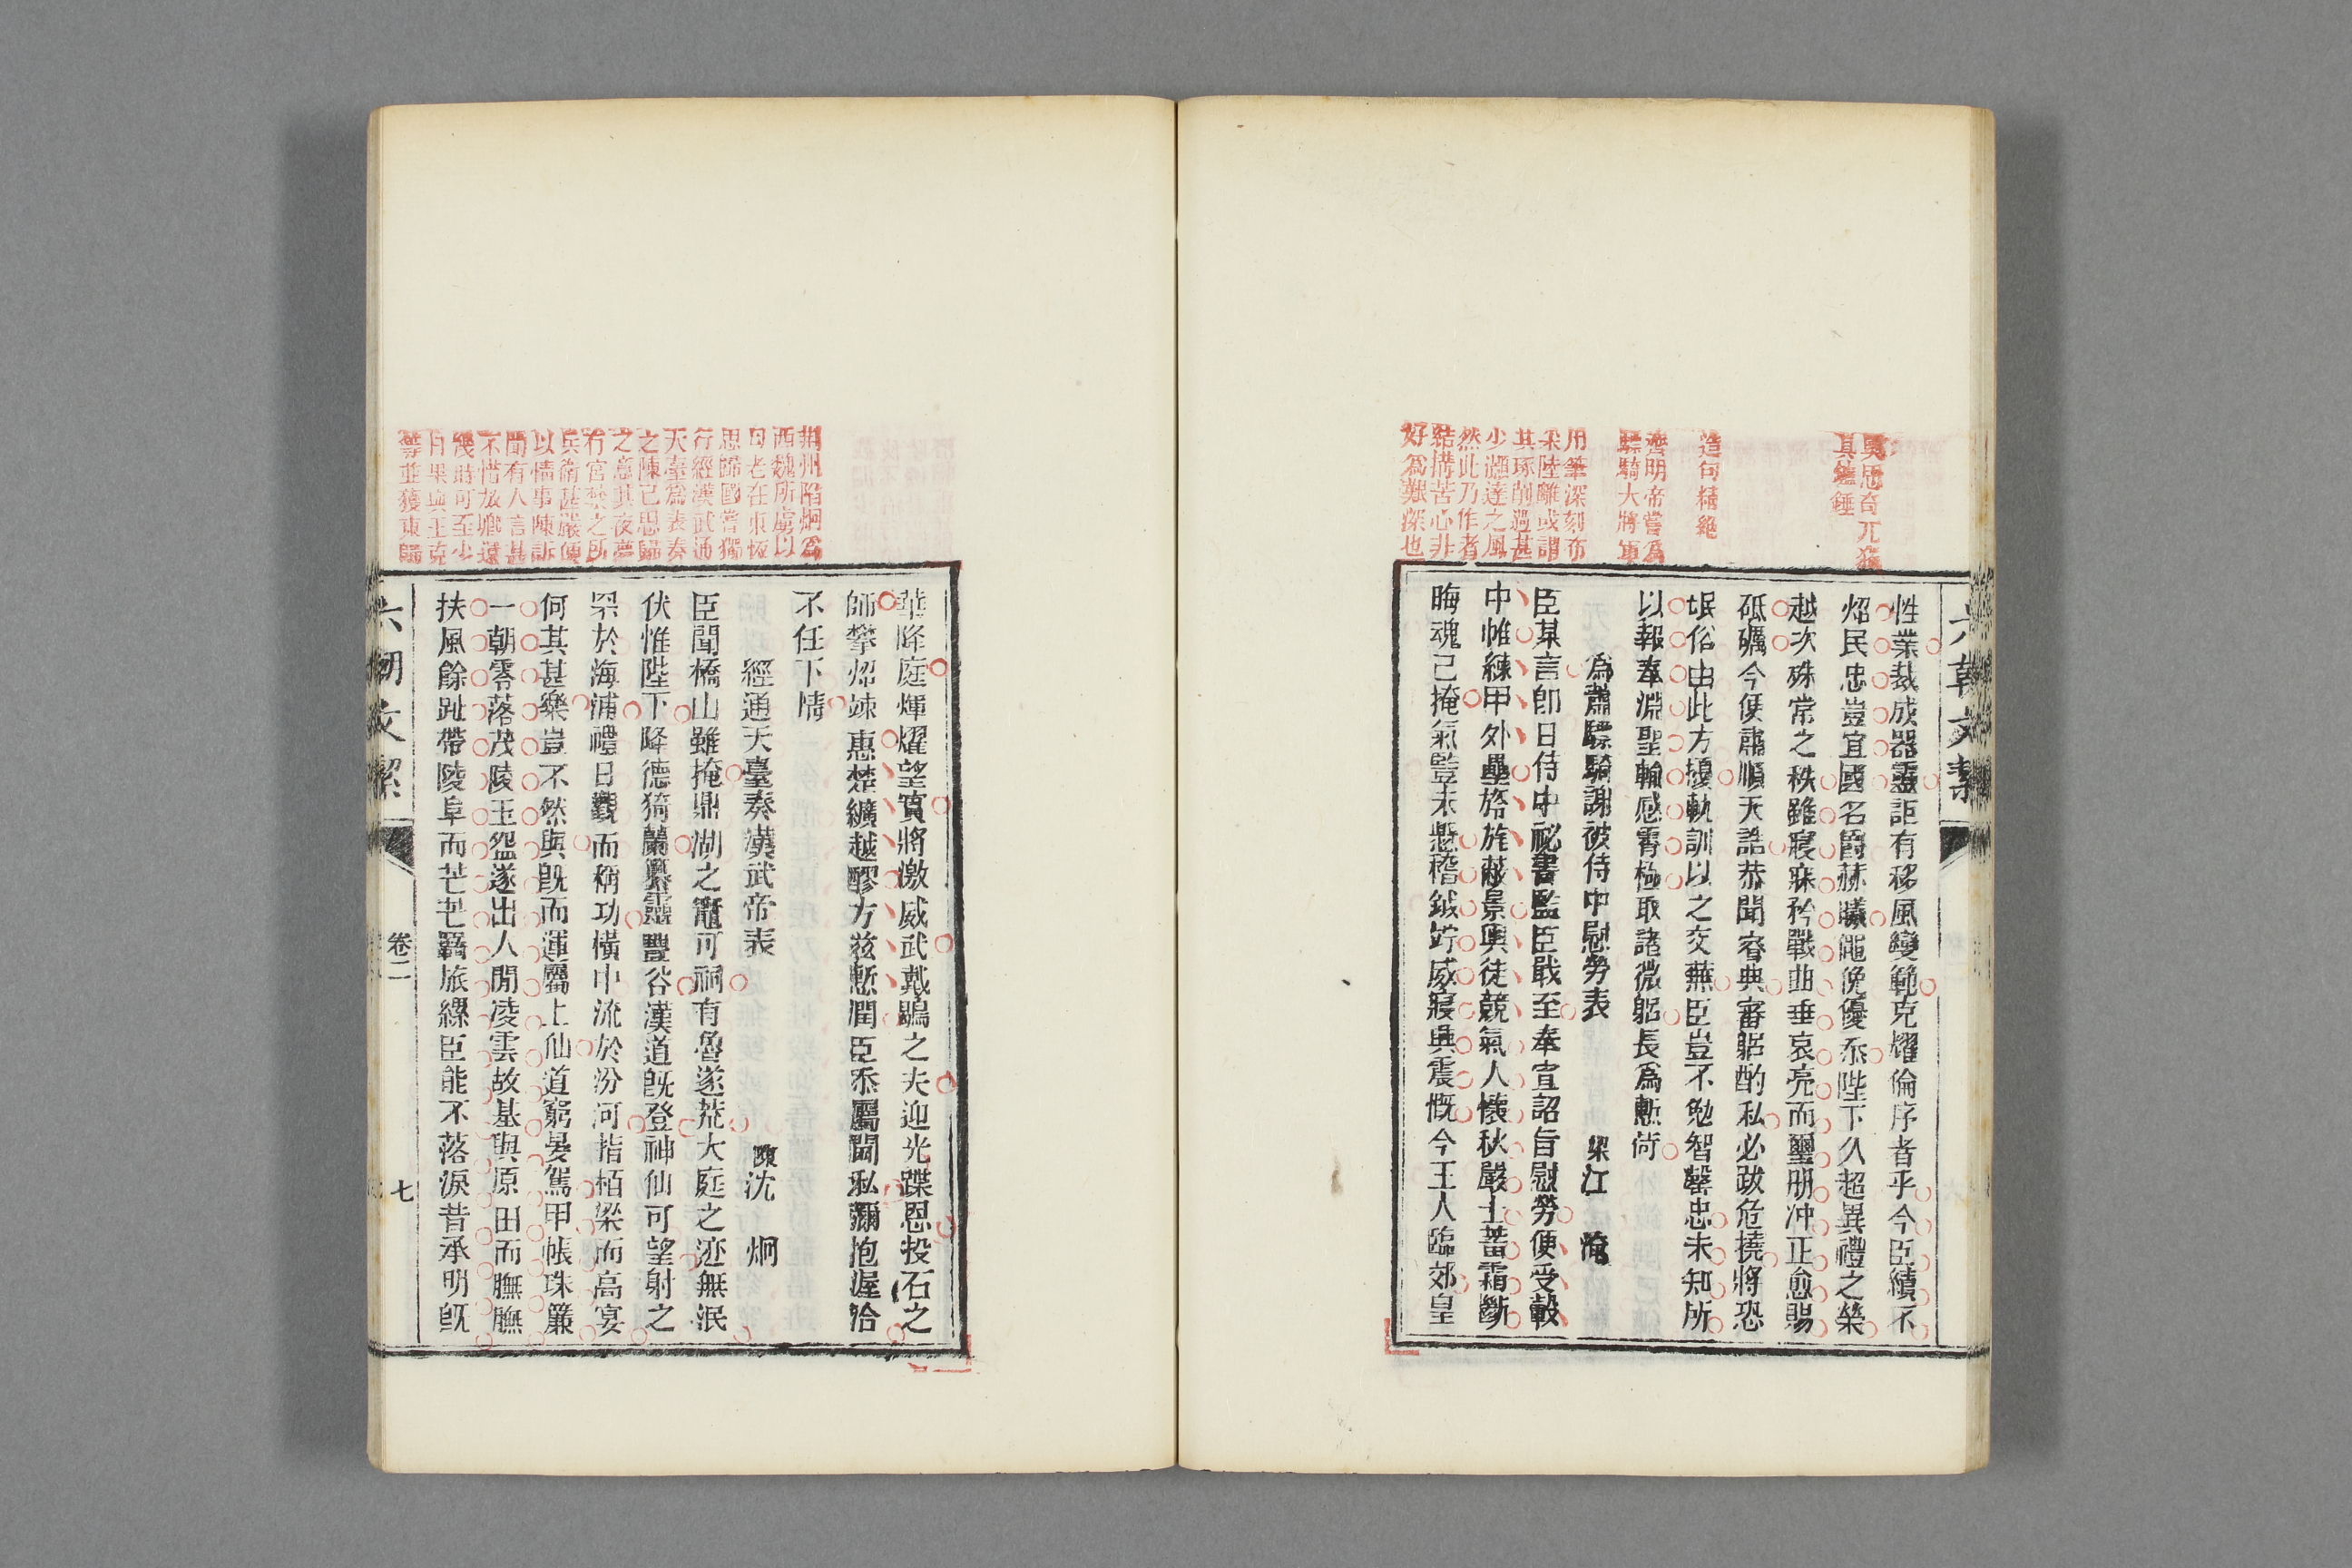 六朝文絜
奧思奇兀獨
具鑪錘
造句精絶
濟明帝嘗爲
驃騎大將軍
用筆深刻布
采陸離或謂
其琢削過甚
少灝達之風
然此乃作者
結搆苦心非
好爲艱深也
性業裁成器靈詎有移風變範克耀倫序者乎今臣績不
炤民忠豈宜國名爵赫曦黽俛優忝陛下久超異禮之榮
越次殊常之秩雖寢寐矜戰曲垂哀亮而璽册沖正愈賜
砥礪今便肅順天誥恭聞睿典審躬酌私必跋危撓將恐
氓俗由此方擾軌訓以之交蕪臣豈不勉智罄忠未知所
以報奉淵聖輸感霄極取諸微躬長爲慙荷
爲蕭驃騎謝被侍中慰勞表
梁江 淹
臣某言卽日侍中祕書監臣戢至奉宣詔旨慰勞便受轂
中帷練甲外壘旍旄蔽景輿徒競氣人懷秋嚴士蓄霜斷
晦魂已掩氣豎未懸稽鉞竚威寢興震慨今王人臨郊皇
荆州陷炯爲
西魏所虜以
母老在東恆
思歸國嘗獨
行經漢武通
天臺爲表奏
之陳己思歸
之意其夜夢
有宫禁之所
兵衞甚嚴便
以情事陳訴
聞有人言甚
不惜放卿還
幾時可至少
日果與王克
等並獲東歸
華降庭煇燿望實將激威武戴鶡之夫迎光蹀恩投石之
師攀炤竦惠楚纊越醪方兹慙潤臣忝屬閫私彌抱渥洽
不任下情
經通天臺奏漢武帝表
陳沈 炯
臣聞橋山雖掩鼎湖之竈可祠有魯遂荒大庭之迹無泯
伏惟陛下降德猗蘭纂靈豐谷漢道旣登神仙可望射之
罘於海浦禮日觀而稱功橫中流於汾河指栢梁而高宴
何其甚樂豈不然與旣而運屬上仙道窮晏駕甲帳珠簾
一朝零落茂陵玉盌遂出人閒凌雲故基與原田而膴膴
扶風餘趾帶陵阜而芒芒羇旅縲臣能不落淚昔承明旣
六朝文絜
卷二
七